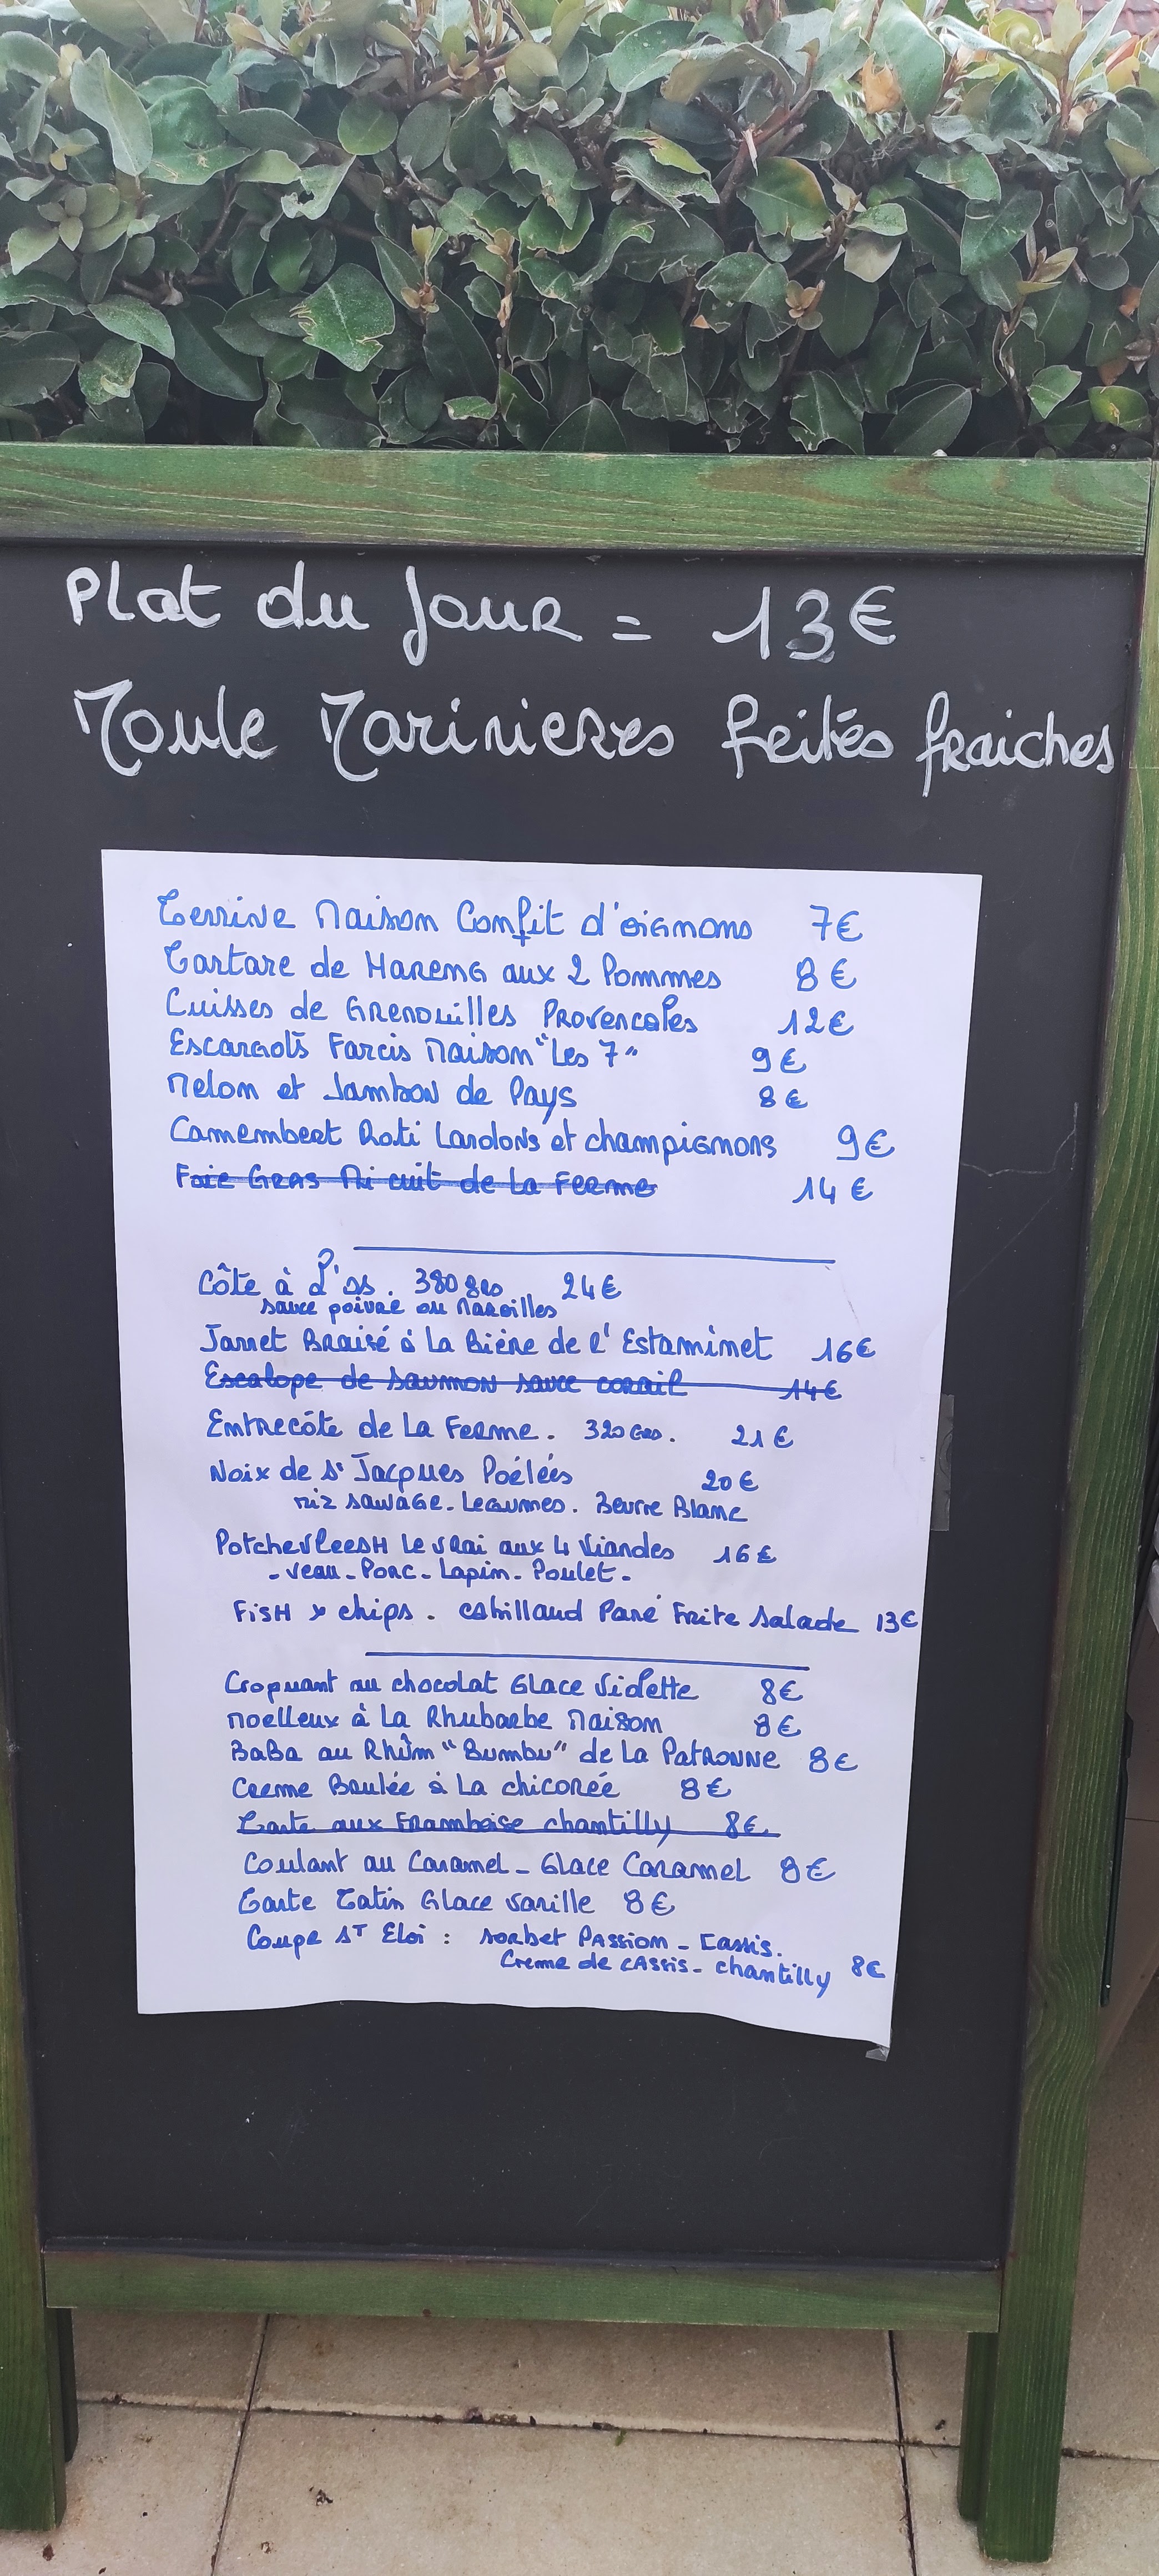 Plat du Jour = 13€
Moule Marinieres freités fraiches
Terrine Maison Confit d'oignons 7€
Tartare de Hareng aux 2 Pommes 8€
Cuisses de Grenouilles Provencales 12€
Escargots Farcis Maison "Les 7" 9€
Melon et Jambon de Pays 8€
Camembert Roti Lardons et champignons 9€
Foie Gras Mi cuit de La Ferme 14€
Côte à L'os. 380 grs 24€
sauce poivre ou Maroilles
Jarret Braisé à La Bière de l'Estaminet 16€
Escalope de Saumon sauce corail 14€
Entrecôte de La Ferme. 320 Grs. 21€
Noix de St Jacques Poélées 20€
riz sauvage. Legumes. Beurre Blanc
Potchevleesh Le vrai aux 4 Viandes 16€
- veau - Porc - Lapin - Poulet -
Fish x chips. Cabillaud Pané Frite Salade 13€
Croquant au chocolat Glace Violette 8€
Moelleux à La Rhubarbe Maison 8€
BaBa au Rhûm "Bumbu" de La Patronne 8€
Creme Brulée à La chicorée 8€
Tarte aux Framboise chantilly 8€
Coulant au Caramel - Glace Caramel 8€
Tarte Tatin Glace vanille 8€
Coupe St Eloi : sorbet Passion - Cassis.
Creme de cassis - chantilly 8€